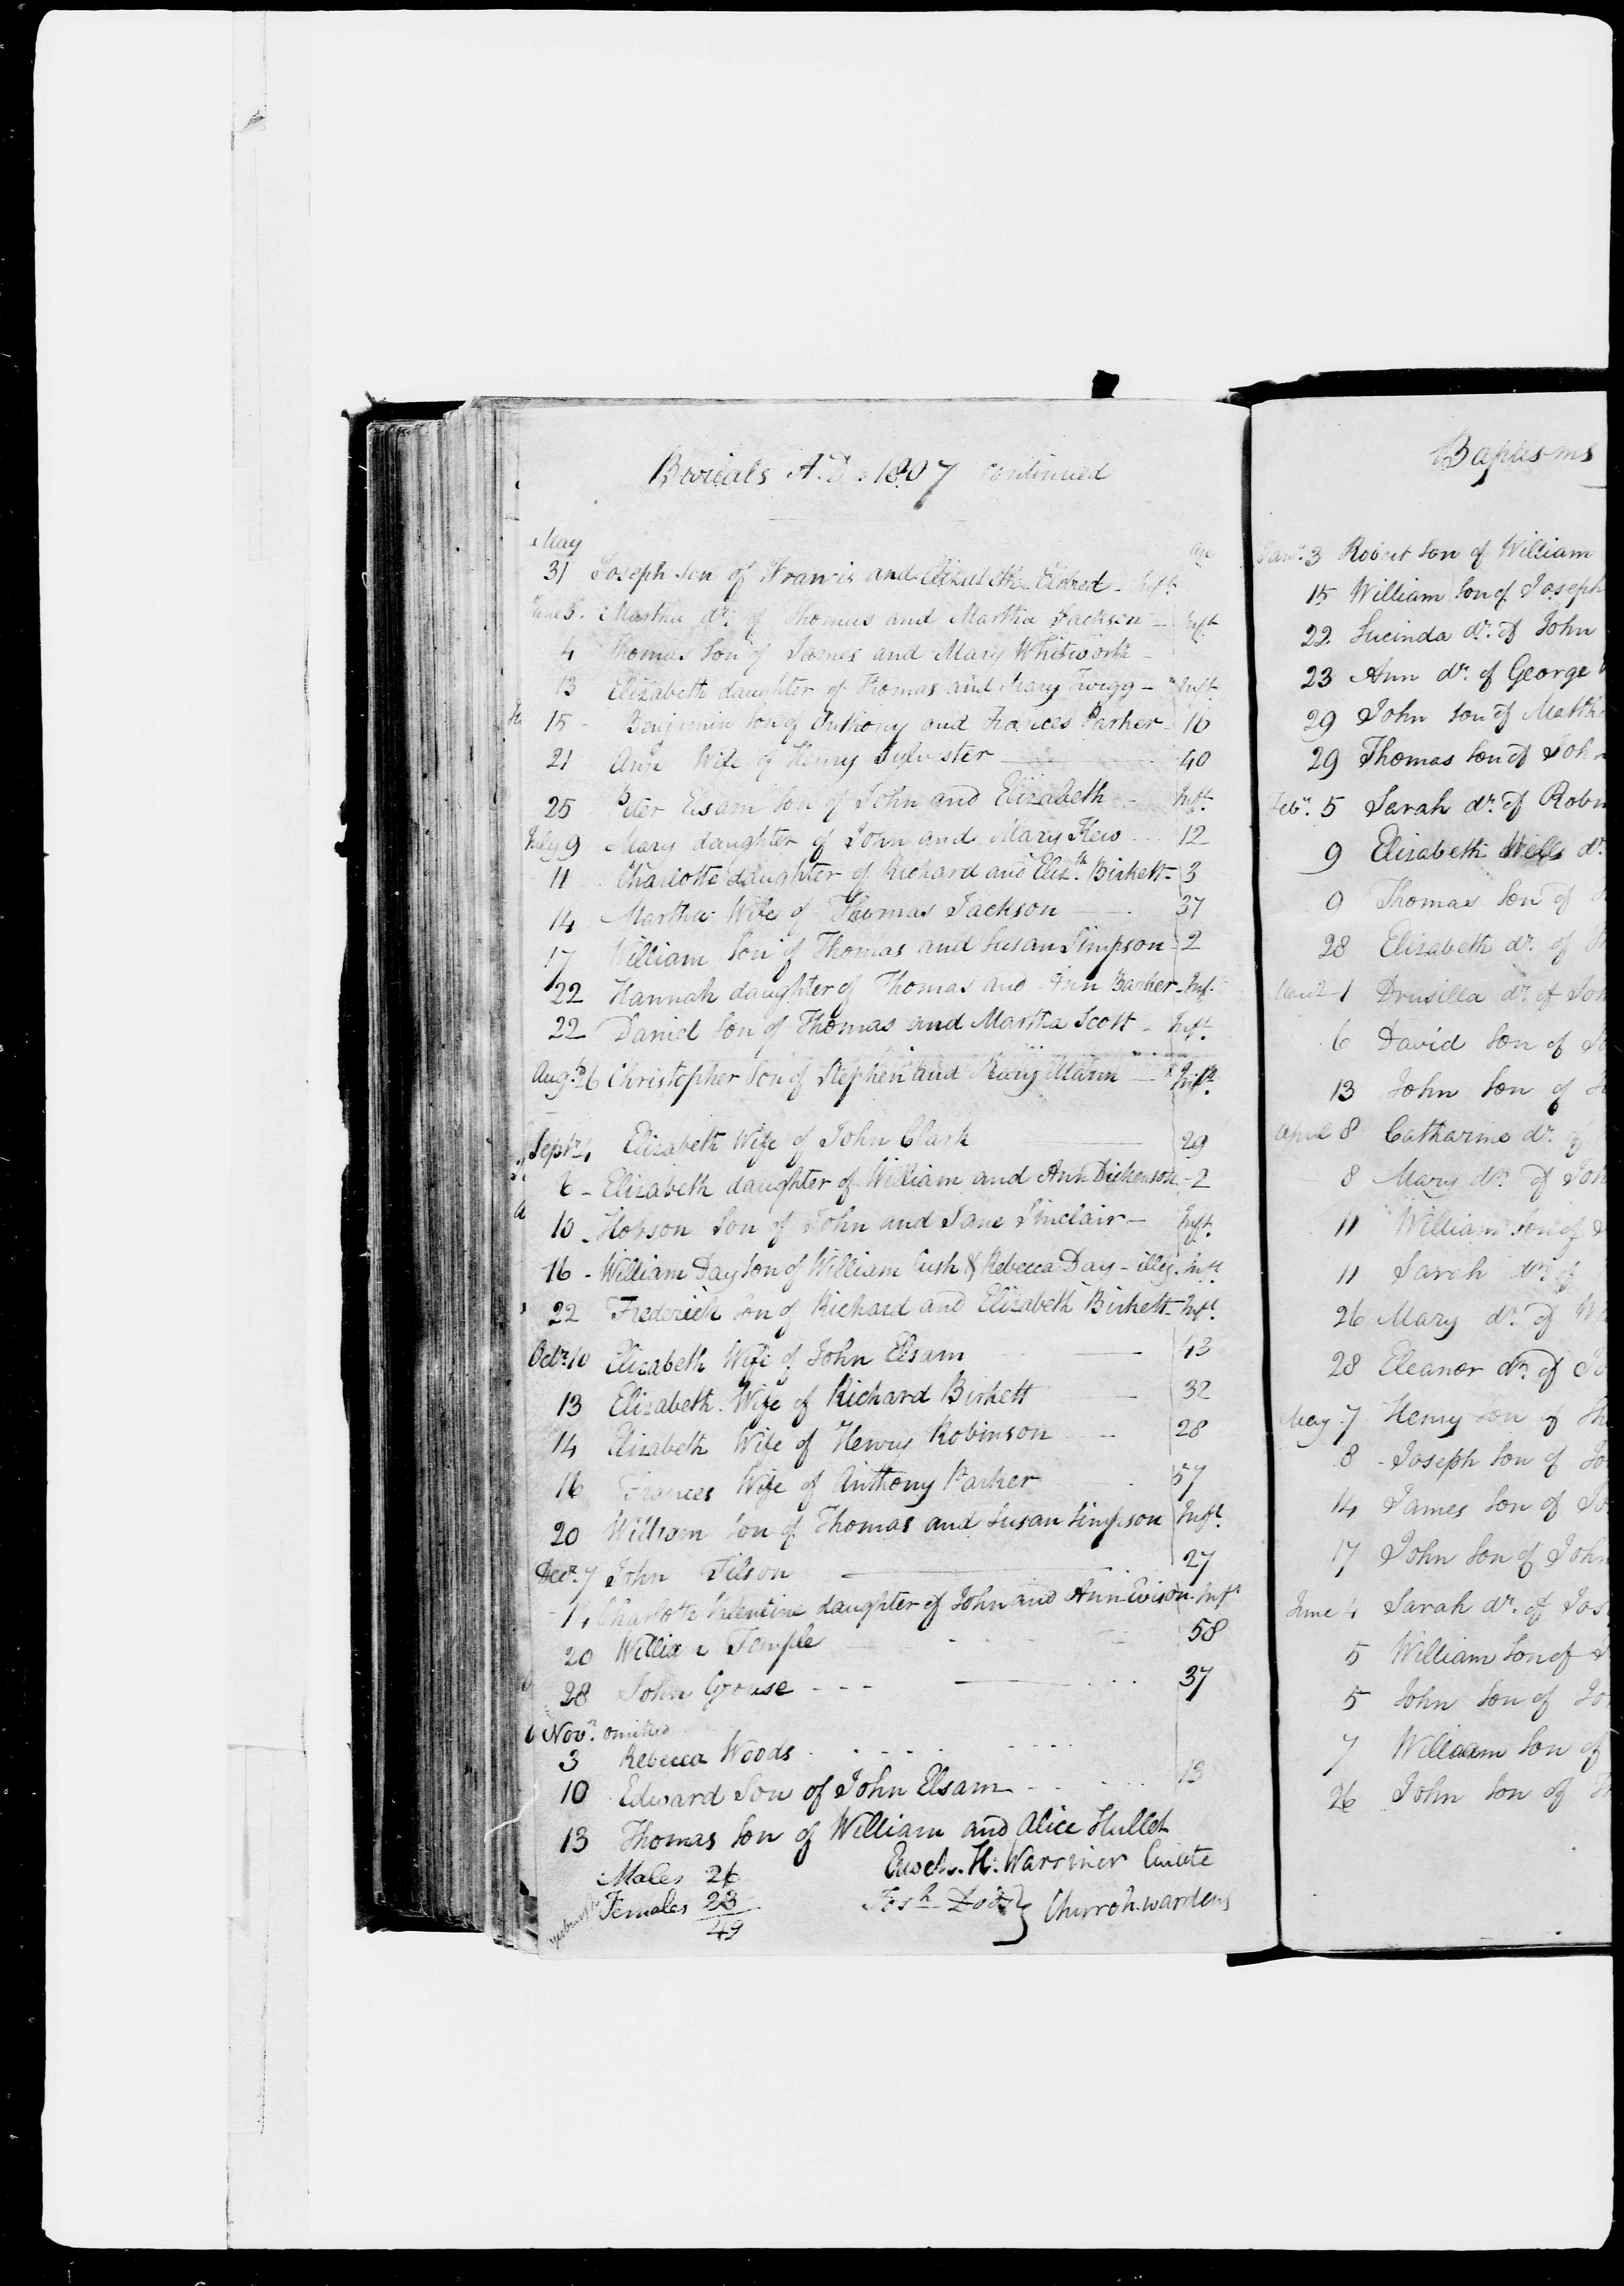 Burials A.D. 1807 continued
May
Age
31 Joseph Son of Francis and Elizabeth Eldred - Inft
June 3. Martha dr. of Thomas and Martha Jackson - Inft
4 Thomas Son of James and Mary Whitworth -
13 Elizabeth daughter of Thomas and Mary Twigg - Inft
15 - Benjamin Son of Anthony and Frances Parker - 16
21 Ann Wife of Henry Sylvester 40
25 Peter Elsam Son of John and Elizabeth - Inft.
July 9 Mary daughter of John and Mary Kew 12
11 Charlotte daughter of Richard and Elizth. Birkett - 3
14 Martha Wife of Thomas Jackson 37
17 William Son of Thomas and Susan Simpson 2
22 Hannah daughter of Thomas and Ann Barker - Inf.
22 Daniel Son of Thomas and Martha Scott - Inft
Augst. 6 Christopher Son of Stephen and Mary Mann - Inft.
Septr. 4 Elizabeth Wife of John Clark 29
6 - Elizabeth daughter of William and Ann Dickenson - 2
10 - Hobson Son of John and Jane Sinclair - Inft.
16 - William Day Son of William Cush & Rebecca Day - illeg. Inft
22 Frederick Son of Richard and Elizabeth Birkett - Inft.
Octr. 10 Elizabeth Wife of John Elsam 43
13 Elizabeth Wife of Richard Birkett 32
14 Elizabeth Wife of Henry Robinson 28
16 Frances Wife of Anthony Parker 57
20 William Son of Thomas and Susan Simpson Inft.
Decr. 7 John Tilson 27
Charlotte Valentine daughter of John and Ann Evison - Inft
20 William Temple 58
28 John Grouse 37
Novr. omitted
3 Rebecca Woods
10 Edward Son of John Elsam 13
13 Thomas Son of William and Alice Hullet
Males 26 H. Warriner Curate
Females 23 Churchwardens
49
Baptisms
Janr. 3 Robert Son of William
15 William Son of Joseph
22 Lucinda dr. of John
23 Ann dr. of George
29 John Son of
29 Thomas Son of John
Febr. 5 Sarah dr. of
9 Elizabeth Wells dr.
9 Thomas Son of
28 Elizabeth dr. of
March 1 Drusilla dr. of
6 David Son of
13 John Son of
April 8 Catharine dr. of
8 Mary dr. of
11 William Son of
11 Sarah dr. of
26 Mary dr. of
28 Eleanor dr. of
May 7 Henry Son of
8 - Joseph Son of
14 James Son of
17 John Son of John
June 4 Sarah dr. of
5 William Son of
5 John Son of
7 William Son of
26 John Son of